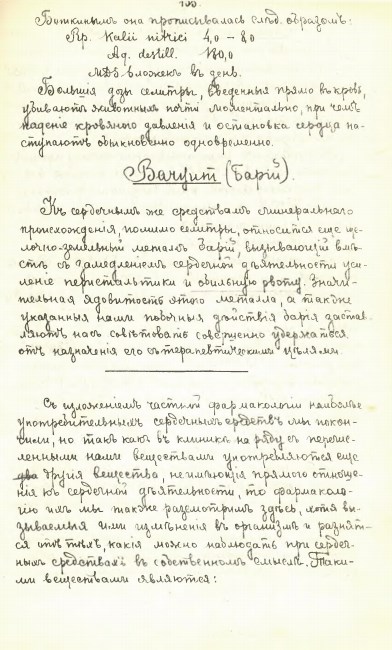 Боткинымъ она прописывалась слѣд. образомъ:
Rp. Kalii nitrici 4,0 – 8,0
Aq. destill. 180,0
MDS ложекъ въ день.
Большія дозы селитры, введенныя прямо въ кровь,
убиваютъ животныхъ почти моментально, при чемъ
паденіе кровяного давленія и остановка сердца на-
ступаютъ обыкновенно одновременно.
(Барій).
Къ сердечнымъ же средствамъ минеральнаго
происхожденія, помимо селитры, относится еще ще-
лочно-земельный металъ барій, вызывающій вмѣ-
стѣ съ замедленіемъ сердечной дѣятельности уси-
леніе перистальтики и обильную рвоту. Значи-
тельная ядовитость этого металла, а также
указанныя нами побочныя дѣйствія барія застав-
ляютъ насъ совѣтовать совершенно удержаться
отъ назначенія его съ терапевтическими цѣлями.
Съ изложеніемъ частной фармакологіи наиболѣе
употребительныхъ сердечныхъ средствъ мы покон-
чили, но такъ какъ въ клиникѣ на ряду съ перечис-
ленными нами веществами употребляются еще
два другія вещества, не имѣющія прямого отноше-
нія къ сердечной дѣятельности, то фармаколо-
гію ихъ мы также разсмотримъ здѣсь, хотя вы-
зываемыя ими измѣненія въ организмѣ и разнят-
ся отъ тѣхъ, какія можно наблюдать при сердеч-
ныхъ средствахъ въ собственномъ смыслѣ. Таки-
ми веществами являются: